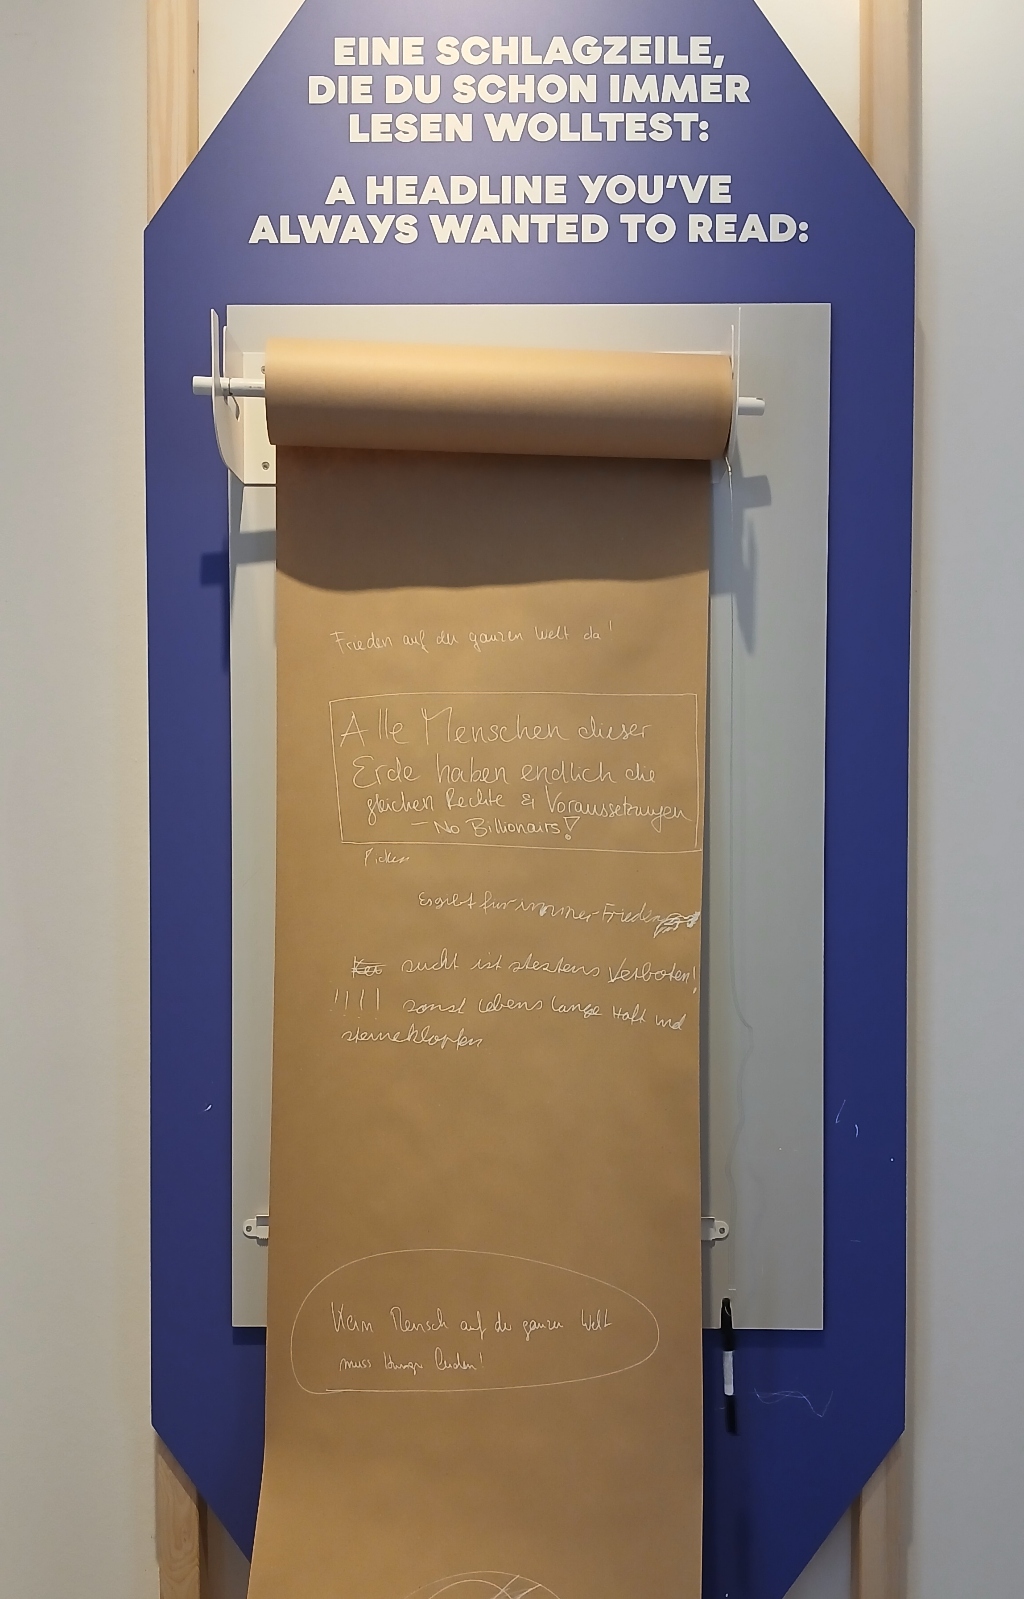 EINE SCHLAGZEILE,
DIE DU SCHON IMMER
LESEN WOLLTEST:
A HEADLINE YOU'VE
ALWAYS WANTED TO READ:
Frieden auf der ganzen Welt da!
Alle Menschen dieser
Erde haben endlich die
gleichen Rechte & Voraussetzungen
– No Billionairs!
Es gibt für immer Frieden
sucht ist Verboten!
!!!! sonst lebens lange Haft und
steineklopfen
Kein Mensch auf der ganzen Welt
muss Hunger leiden!